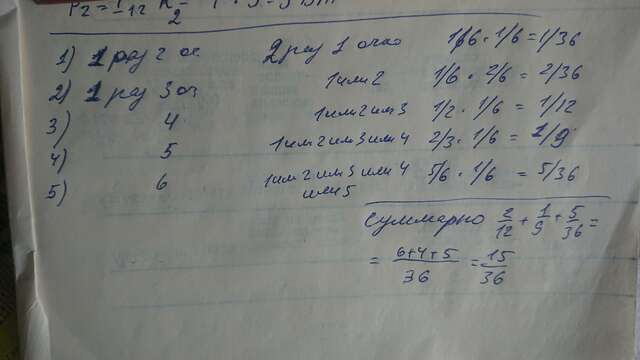 1) 1 раз 2 оч 2 раз 1 очко 1/6 · 1/6 = 1/36
2) 1 раз 3 оч 1 или 2 1/6 · 2/6 = 2/36
3) 4 1 или 2 или 3 1/2 · 1/6 = 1/12
4) 5 1 или 2 или 3 или 4 2/3 · 1/6 = 1/9
5) 6 1 или 2 или 3 или 4 или 5 5/6 · 1/6 = 5/36
Суммарно 2/12 + 1/9 + 5/36 =
= (6+4+5)/36 = 15/36